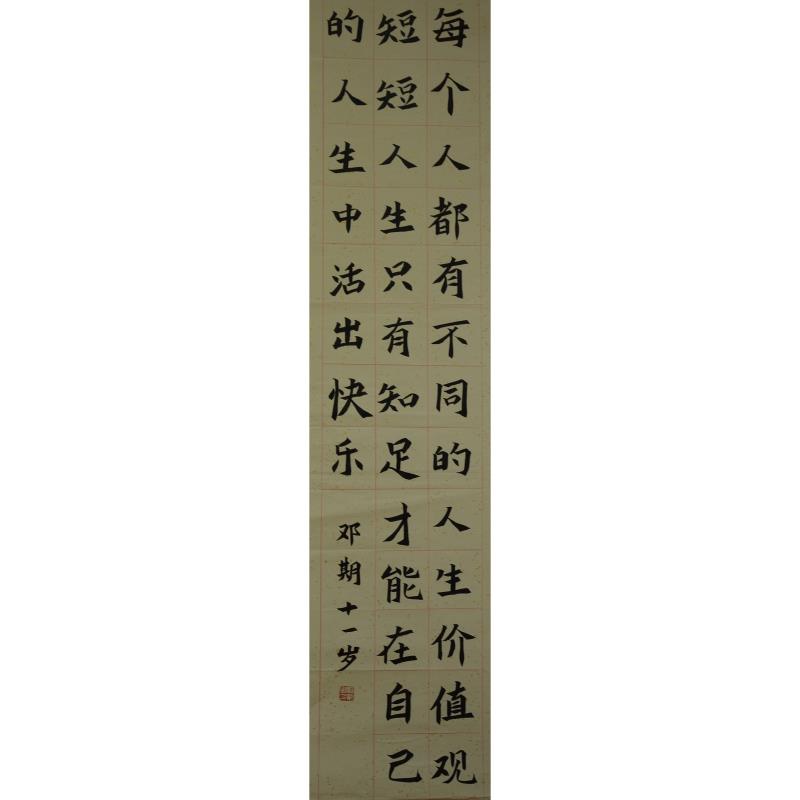 每个人都有不同的人生价值观
短短人生只有知足才能在自己
的人生中活出快乐
邓期十一岁